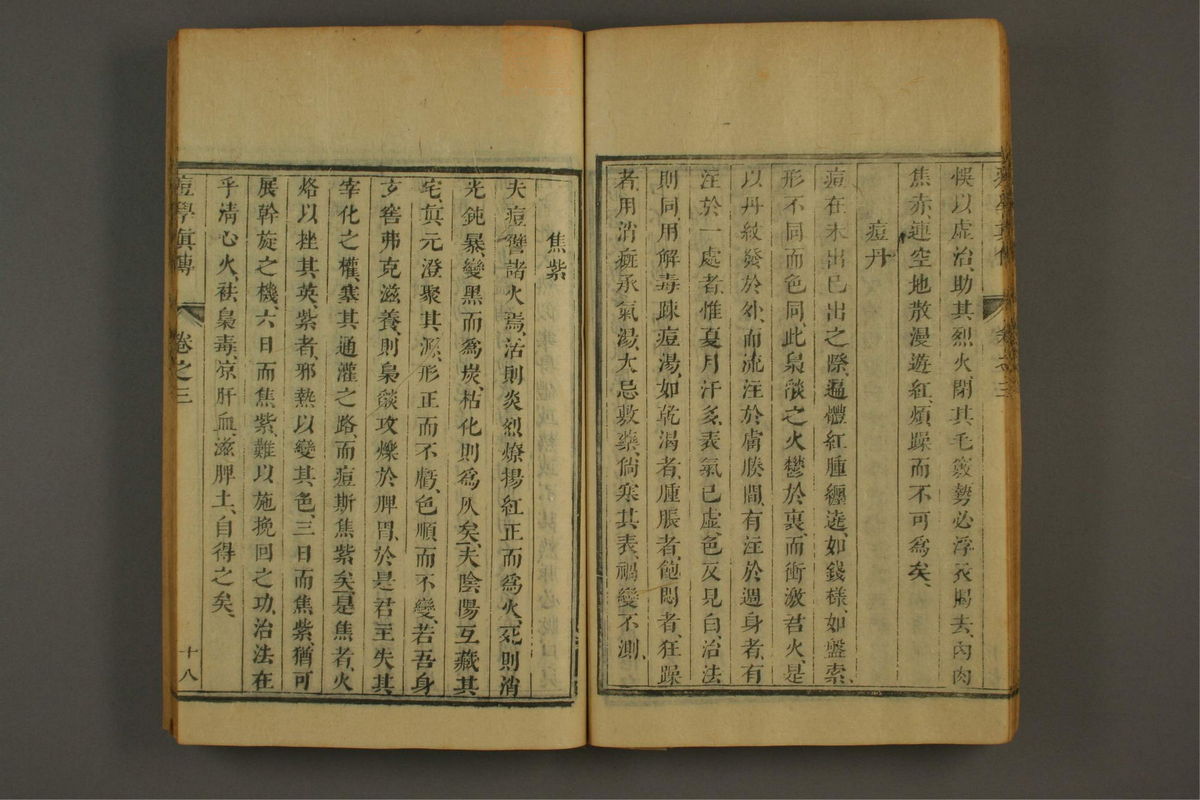 悞以虛治、助其烈火、閉其毛竅、勢必浮衣脫去、肉肉
焦赤、連空地散漫遊紅、煩躁而不可爲矣、
痘丹
痘在未出已出之際、遍體紅腫纏遶、如錢樣、如盤索、
形不同而色同、此梟燄之火鬱於裏、而衝激君火、是
以丹紋發於外、而流注於膚腠間、有注於週身者、有
注於一處者、惟夏月汗多、表氣已虛、色反見白、治法
則同、用解毒踈痘湯、如乾渴者、腫脹者、飽悶者、狂躁
者、用消癍承氣湯、大忌敷藥、倘寒其表、禍變不測、
焦紫
夫痘讐諸火焉、活則炎烈燎揚、紅正而爲火、死則消
光鈍暴、變黑而爲炭、枯化則爲灰矣、夫陰陽互藏其
宅、眞元澄聚其源、形正而不虧、色順而不變、若吾身
玄窖弗克滋養、則梟燄攻爍於脾胃、於是君主失其
宰化之權、塞其通灌之路、而痘斯焦紫矣、是焦者、火
烙以挫其英、紫者、邪熱以變其色、三日而焦紫、猶可
展幹旋之機、六日而焦紫、難以施挽回之功、治法在
乎清心火、袪梟毒、凉肝血、滋脾土、自得之矣、
痘學眞傳
卷之三
十八